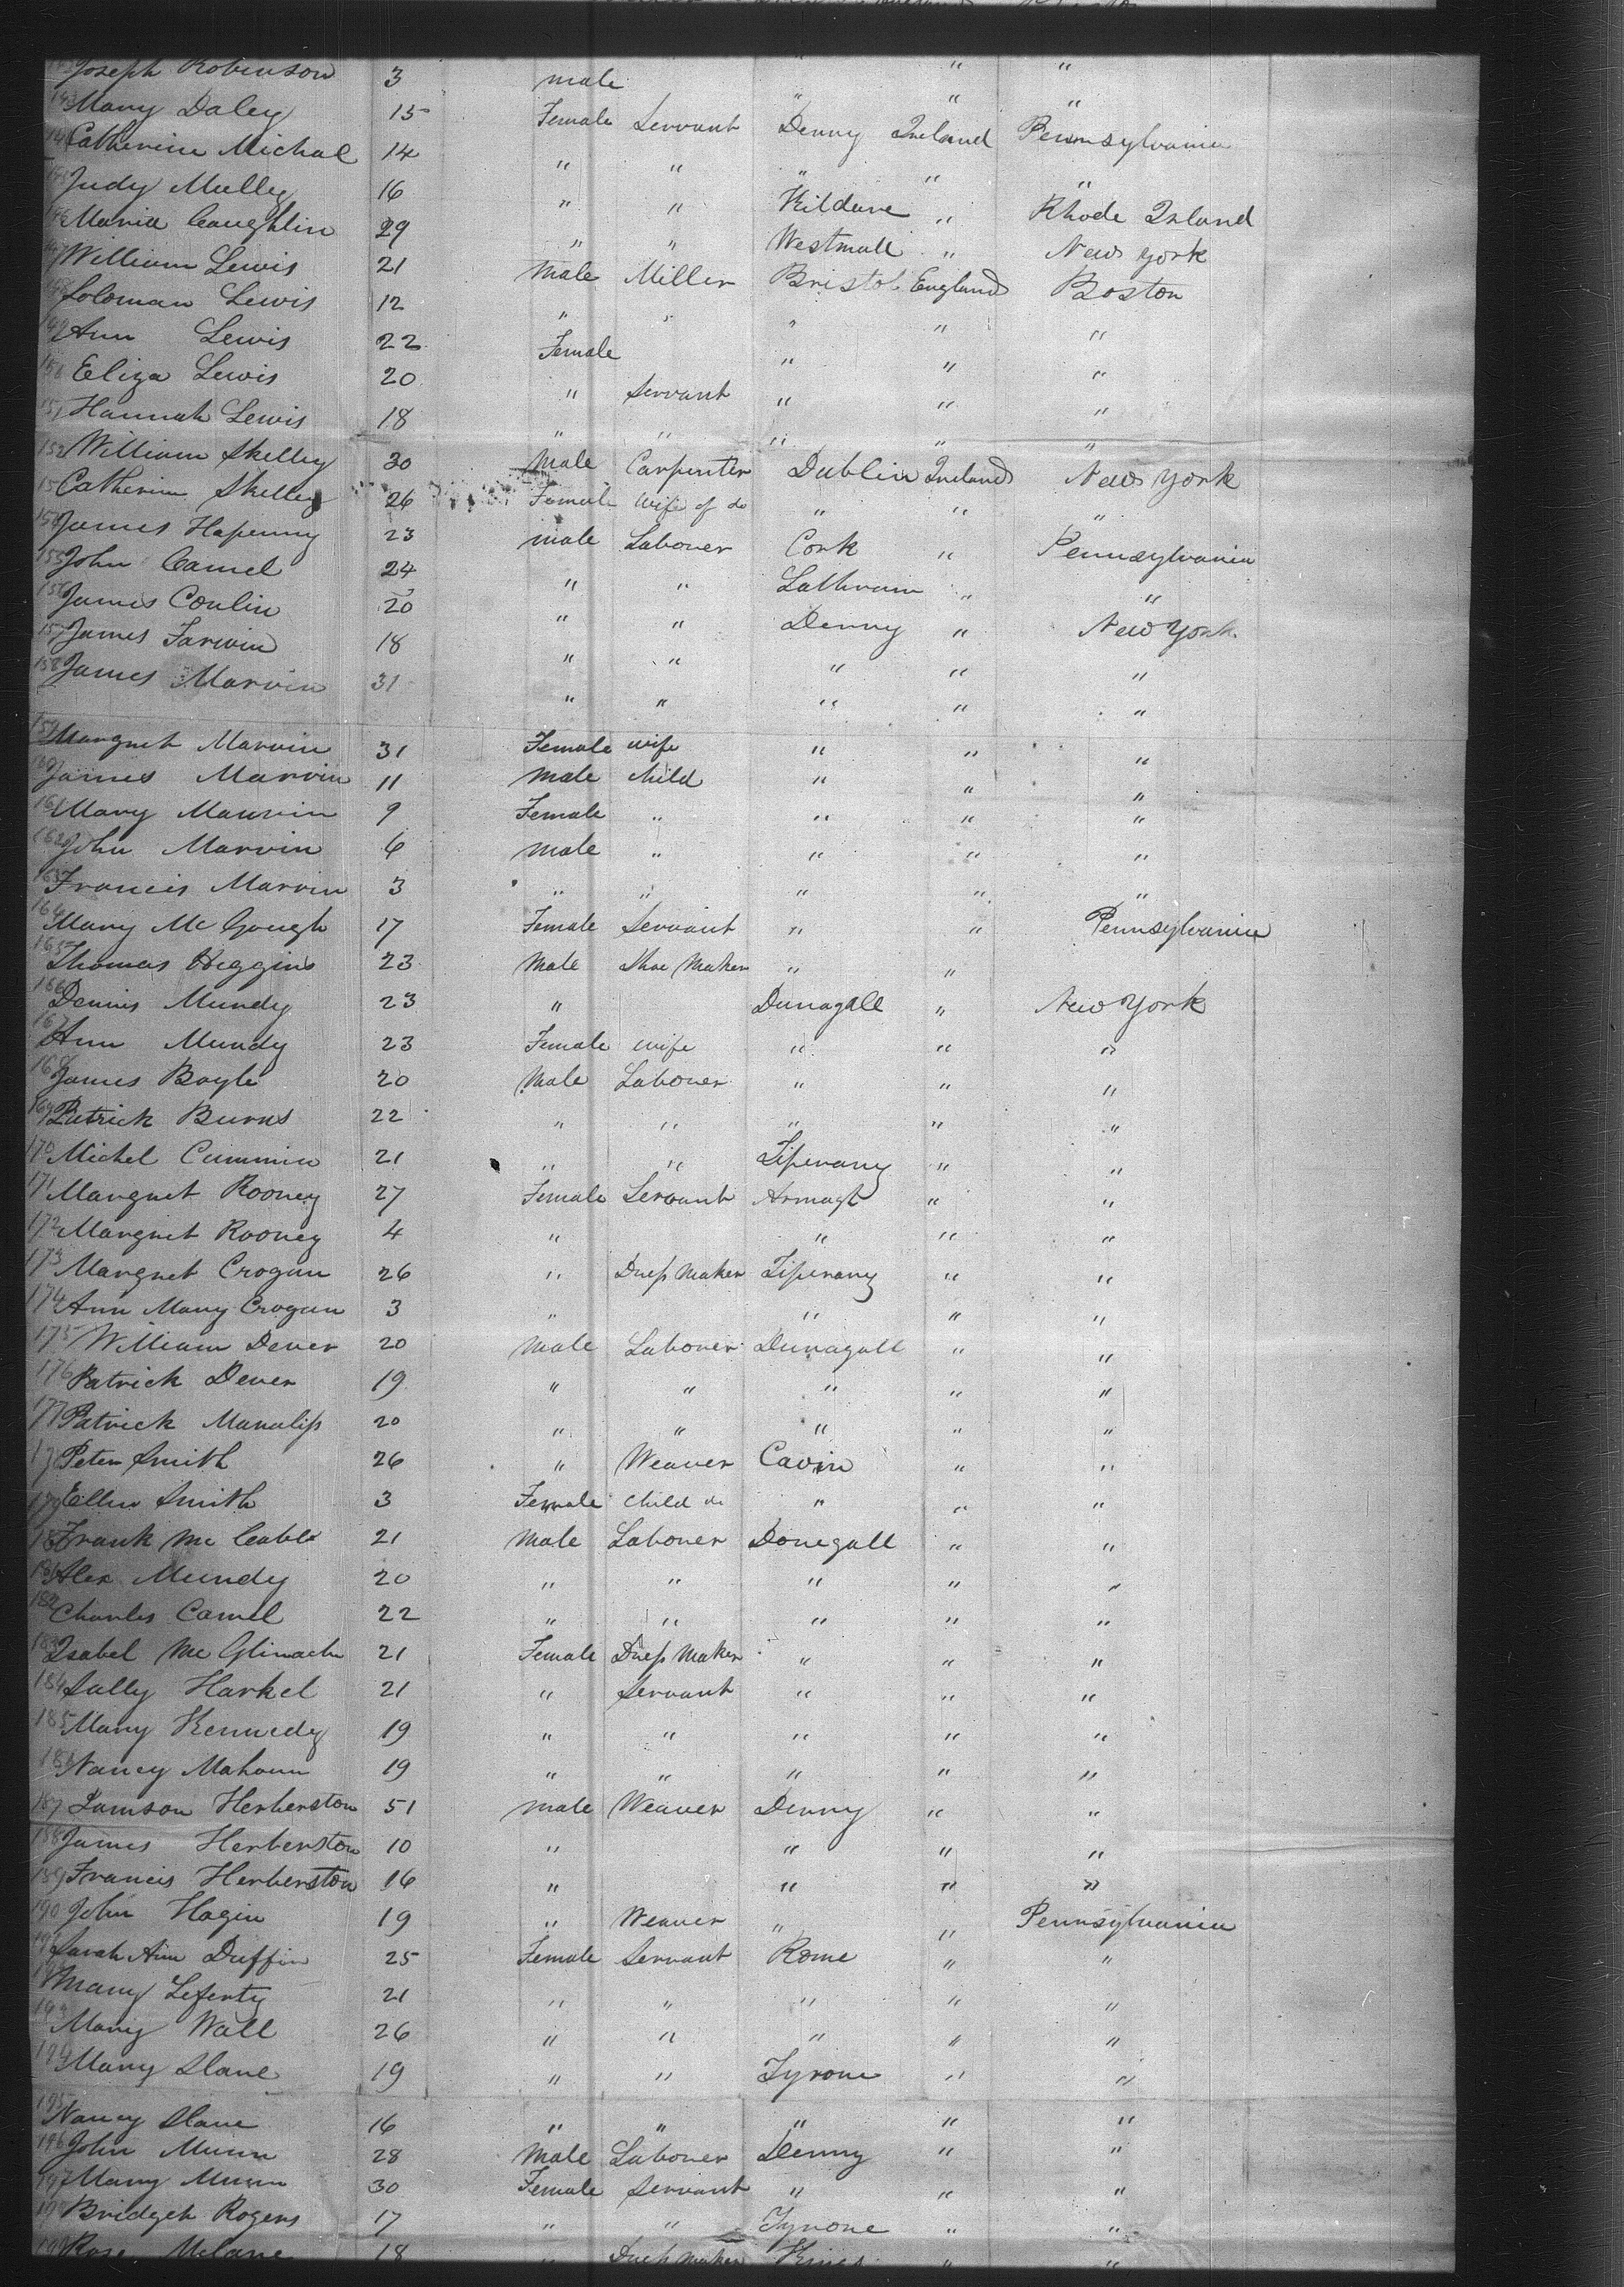 Joseph Robinson 3 male " " "
143 Mary Daley 15 Female Servant Derry Ireland Pennsylvania
144 Catherine Michal 14 " " " " "
145 Judy Mulley 16 " " Kildare " Rhode Island
146 Maria Caughlin 29 " " Westmall " New York
147 William Lewis 21 male Miller Bristol England Boston
148 Soloman Lewis 12 " " " " "
149 Ann Lewis 22 Female " " "
150 Eliza Lewis 20 " Servant " " "
151 Hannah Lewis 18 " " " " "
152 William Skelley 30 Male Carpenter Dublin Ireland New York
15 Catherine Skelley 26 Female Wife of do " " "
154 James Hapenny 23 male Laborer Cork " Pennsylvania
155 John Camel 24 " " Lathram " "
156 James Conlin 20 " " Derry " New York
157 James Farwin 18 " " " " "
158 James Marvin 31 " " " " "
159 Margret Marvin 31 Female wife " " "
160 James Marvin 11 male child " " "
161 Mary Marvin 9 Female " " " "
162 John Marvin 6 male " " " "
163 Francis Marvin 3 " " " " "
164 Mary Mc Gough 17 Female Servant " " Pennsylvania
165 Thomas Higgins 23 Male Shoe Maker " "
166 Dennis Mundy 23 " Dunagall " New York
167 Ann Mundy 23 Female wife " " "
168 James Boyle 20 Male Laborer " " "
169 Patrick Burns 22 " " " " "
170 Michel Cummin 21 " " Tiperary " "
171 Margret Rooney 27 Female Servant Armagh " "
172 Margret Rooney 4 " " " "
173 Margret Crogan 26 " Dress Maker Tiperary " "
174 Ann Mary Crogan 3 " " " "
175 William Dever 20 Male Laborer Dunagall " "
176 Patrick Dever 19 " " " " "
177 Patrick Manaliss 20 " " " " "
17 Peter Smith 26 " Weaver Cavin " "
179 Ellen Smith 3 Female Child do " " "
180 Frank Mc Cable 21 Male Laborer Donegall " "
181 Alex Mundy 20 " " " " "
182 Charles Camel 22 " " " " "
183 Isabel Mc Glinache 21 Female Dress Maker " " "
184 Sally Harkel 21 " Servant " " "
185 Mary Kennedy 19 " " " " "
186 Nancy Mahorn 19 " " " " "
187 Samson Herberston 51 male Weaver Derry " "
188 James Herberston 10 " " " "
189 Francis Herberston 16 " " " "
190 John Hagin 19 " Weaver " " Pennsylvania
191 Sarah Ann Duffin 25 Female Servant Rome " "
192 Mary Leferty 21 " " " " "
193 Mary Wall 26 " " " " "
194 Mary Slane 19 " " Tyrone " "
195 Nancy Slane 16 " " " " "
196 John Munn 28 Male Laborer Derry " "
197 Mary Munn 30 Female Servant " " "
198 Bridget Rogers 17 " " Tyrone " "
199 Rose Melane 18 " Dress Maker Kings " "